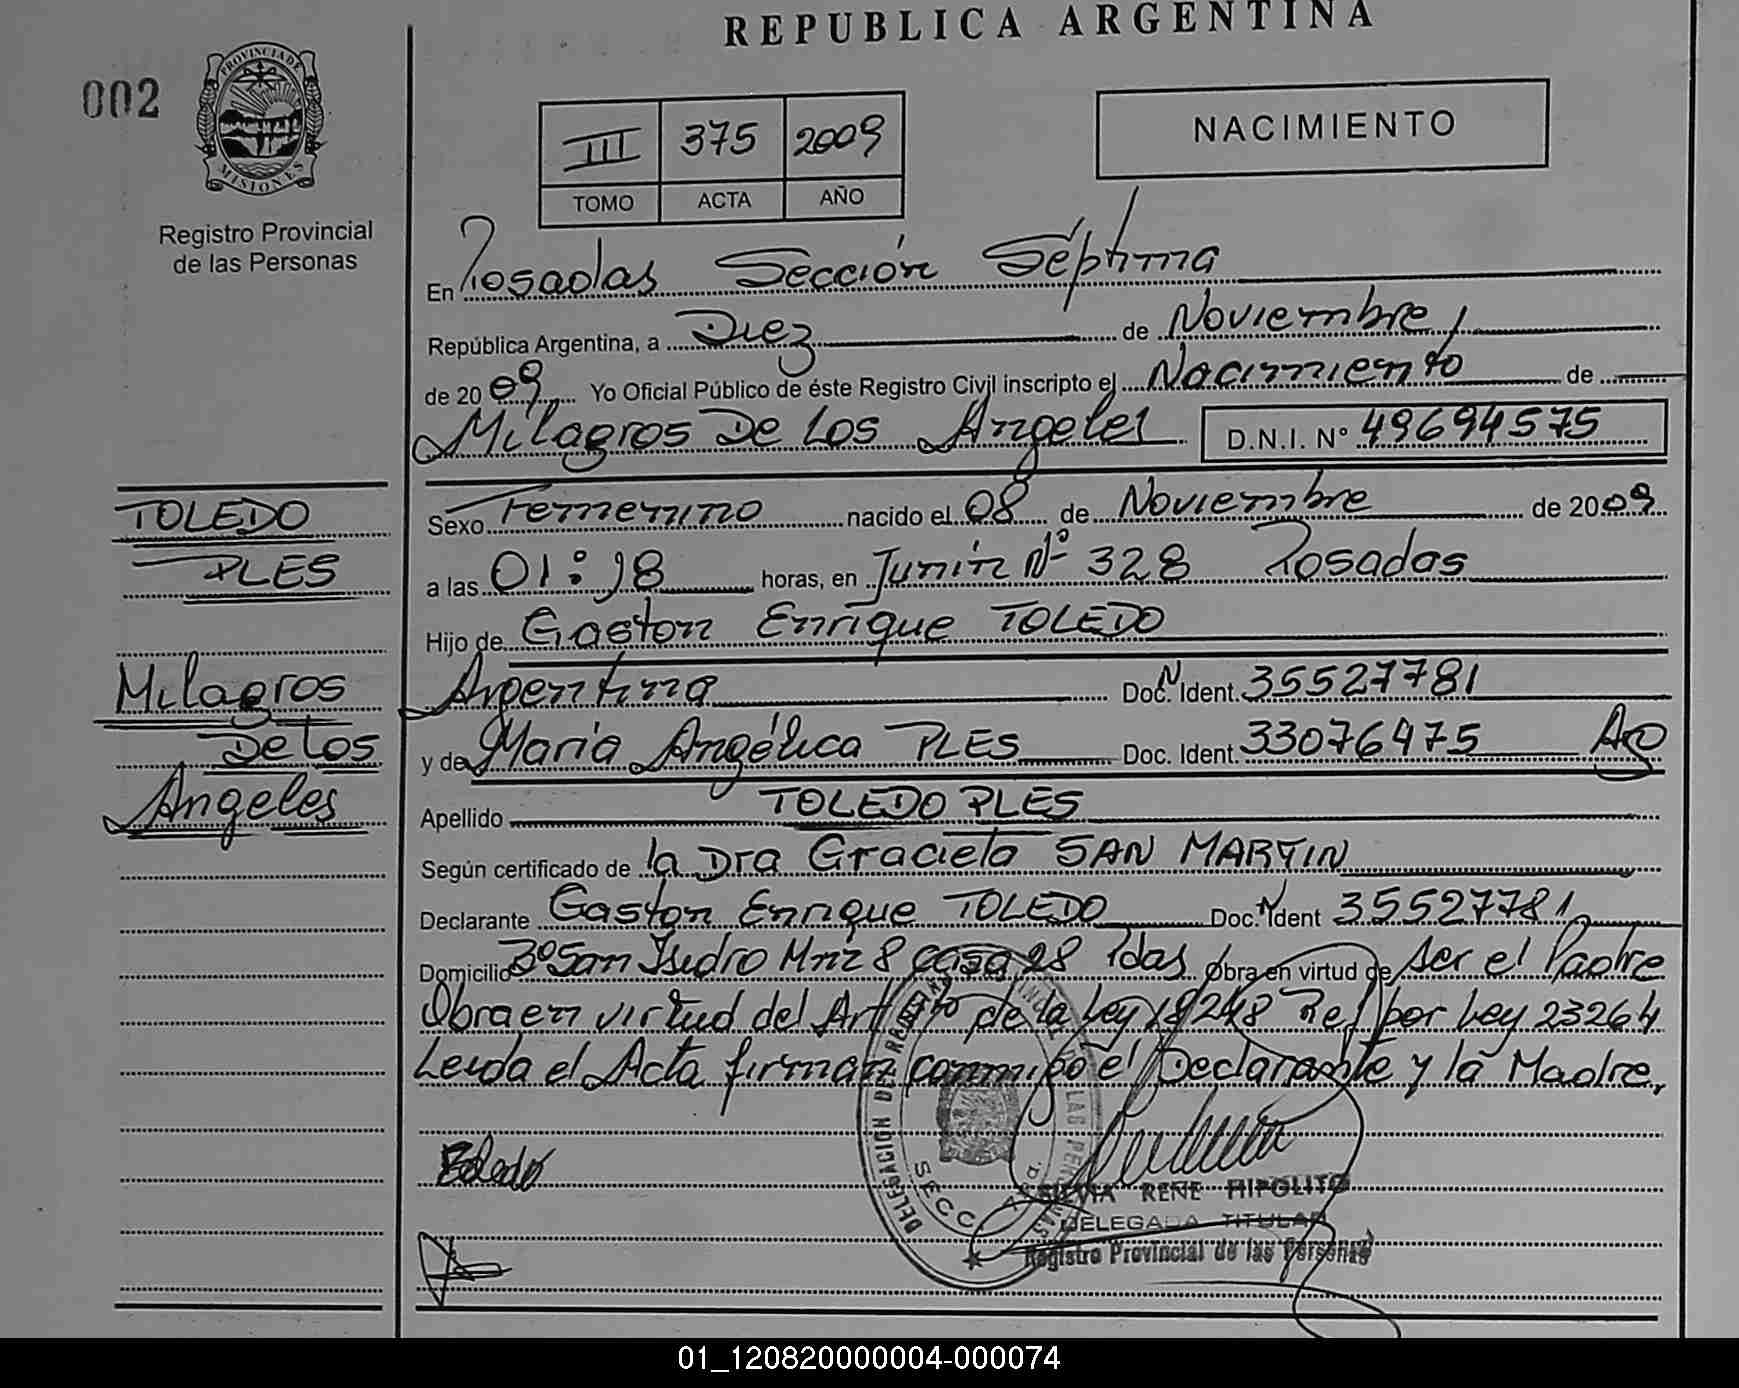 REPUBLICA ARGENTINA
002
PROVINCIA DE
MISIONES
Registro Provincial
de las Personas
III 375 2009
TOMO ACTA AÑO
NACIMIENTO
En Posadas Sección Séptima
República Argentina, a Diez de Noviembre
de 2009 Yo Oficial Público de éste Registro Civil inscripto el Nacimiento de
Milagros De Los Angeles D.N.I. N° 49694575
TOLEDO
PLES
Milagros
De Los
Angeles
Sexo Femenino nacido el 08 de Noviembre de 2009
a las 01:18 horas, en Junín Nº 328 Posadas
Hijo de Gaston Enrique TOLEDO
Argentina Doc. N Ident. 35527781
y de María Angélica PLES Doc. Ident. 33076475
Apellido TOLEDO PLES
Según certificado de la Dra Graciela SAN MARTIN
Declarante Gaston Enrique TOLEDO Doc. N Ident 35527781
Domicilio Bº San Isidro Mnz 8 casa 28 Pdas Obra en virtud de ser el Padre
Obra en virtud del Art de la Ley 18248 Ref por Ley 23264
Leida el Acta firman conmigo el Declarante y la Madre,
Toledo
DELEGACION DEL
LAS
SECC.
SILVIA RENE HIPOLITO
DELEGADA TITULAR
Registro Provincial de las Personas
01_120820000004-000074